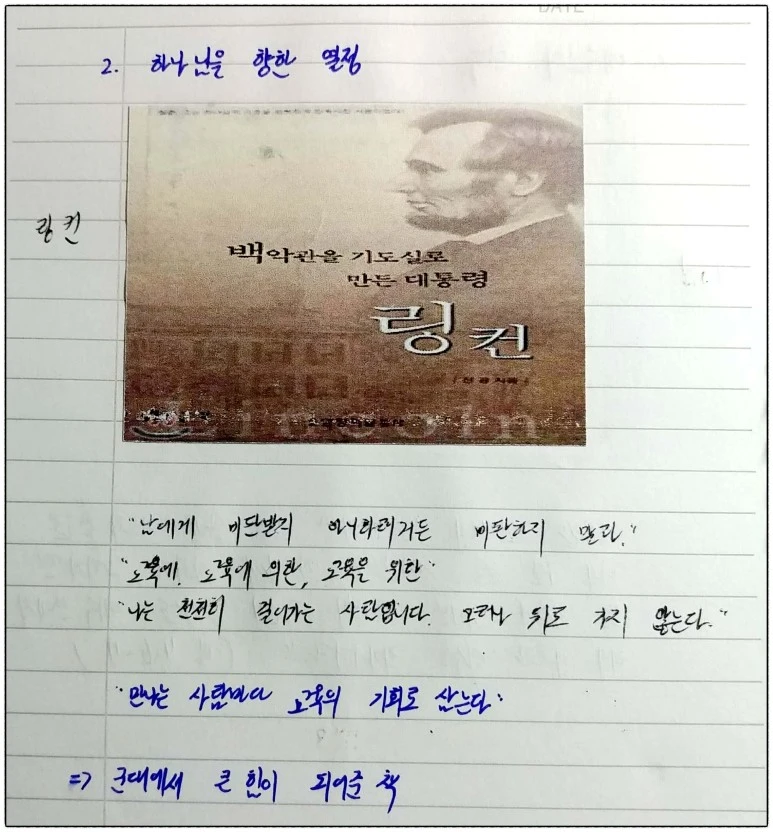 2. 하나님을 향한 열정
링컨
백악관을 기도실로
만든 대통령
링컨
전광 지음
Lincoln
"남에게 비판받지 아니하려거든 비판하지 말라."
"교육에, 교육에 의한, 교육을 위한"
"나는 천천히 걸어가는 사람입니다. 그러나 뒤로 가지 않는다."
"만나는 사람마다 교육의 기회로 삼는다"
=> 군대에서 큰 힘이 되어준 책